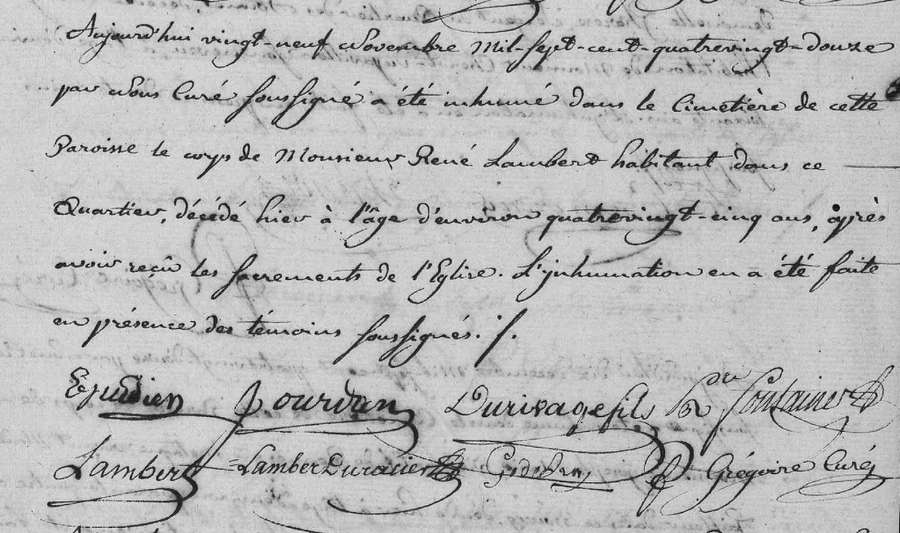 Aujourd'hui vingt-neuf Novembre mil-sept-cent-quatrevingt-douze
par Nous Curé soussigné a été inhumé dans le Cimetière de cette
Paroisse le corps de Monsieur René Lambert habitant dans ce
Quartier, décédé hier à l'âge d'environ quatrevingt-cinq ans, après
avoir reçu les sacrements de l'Eglise. L'inhumation en a été faite
en présence des témoins soussignés. /.
Jourdan Durivage fils
Lambert Lamber Duracier Grégoire Curé